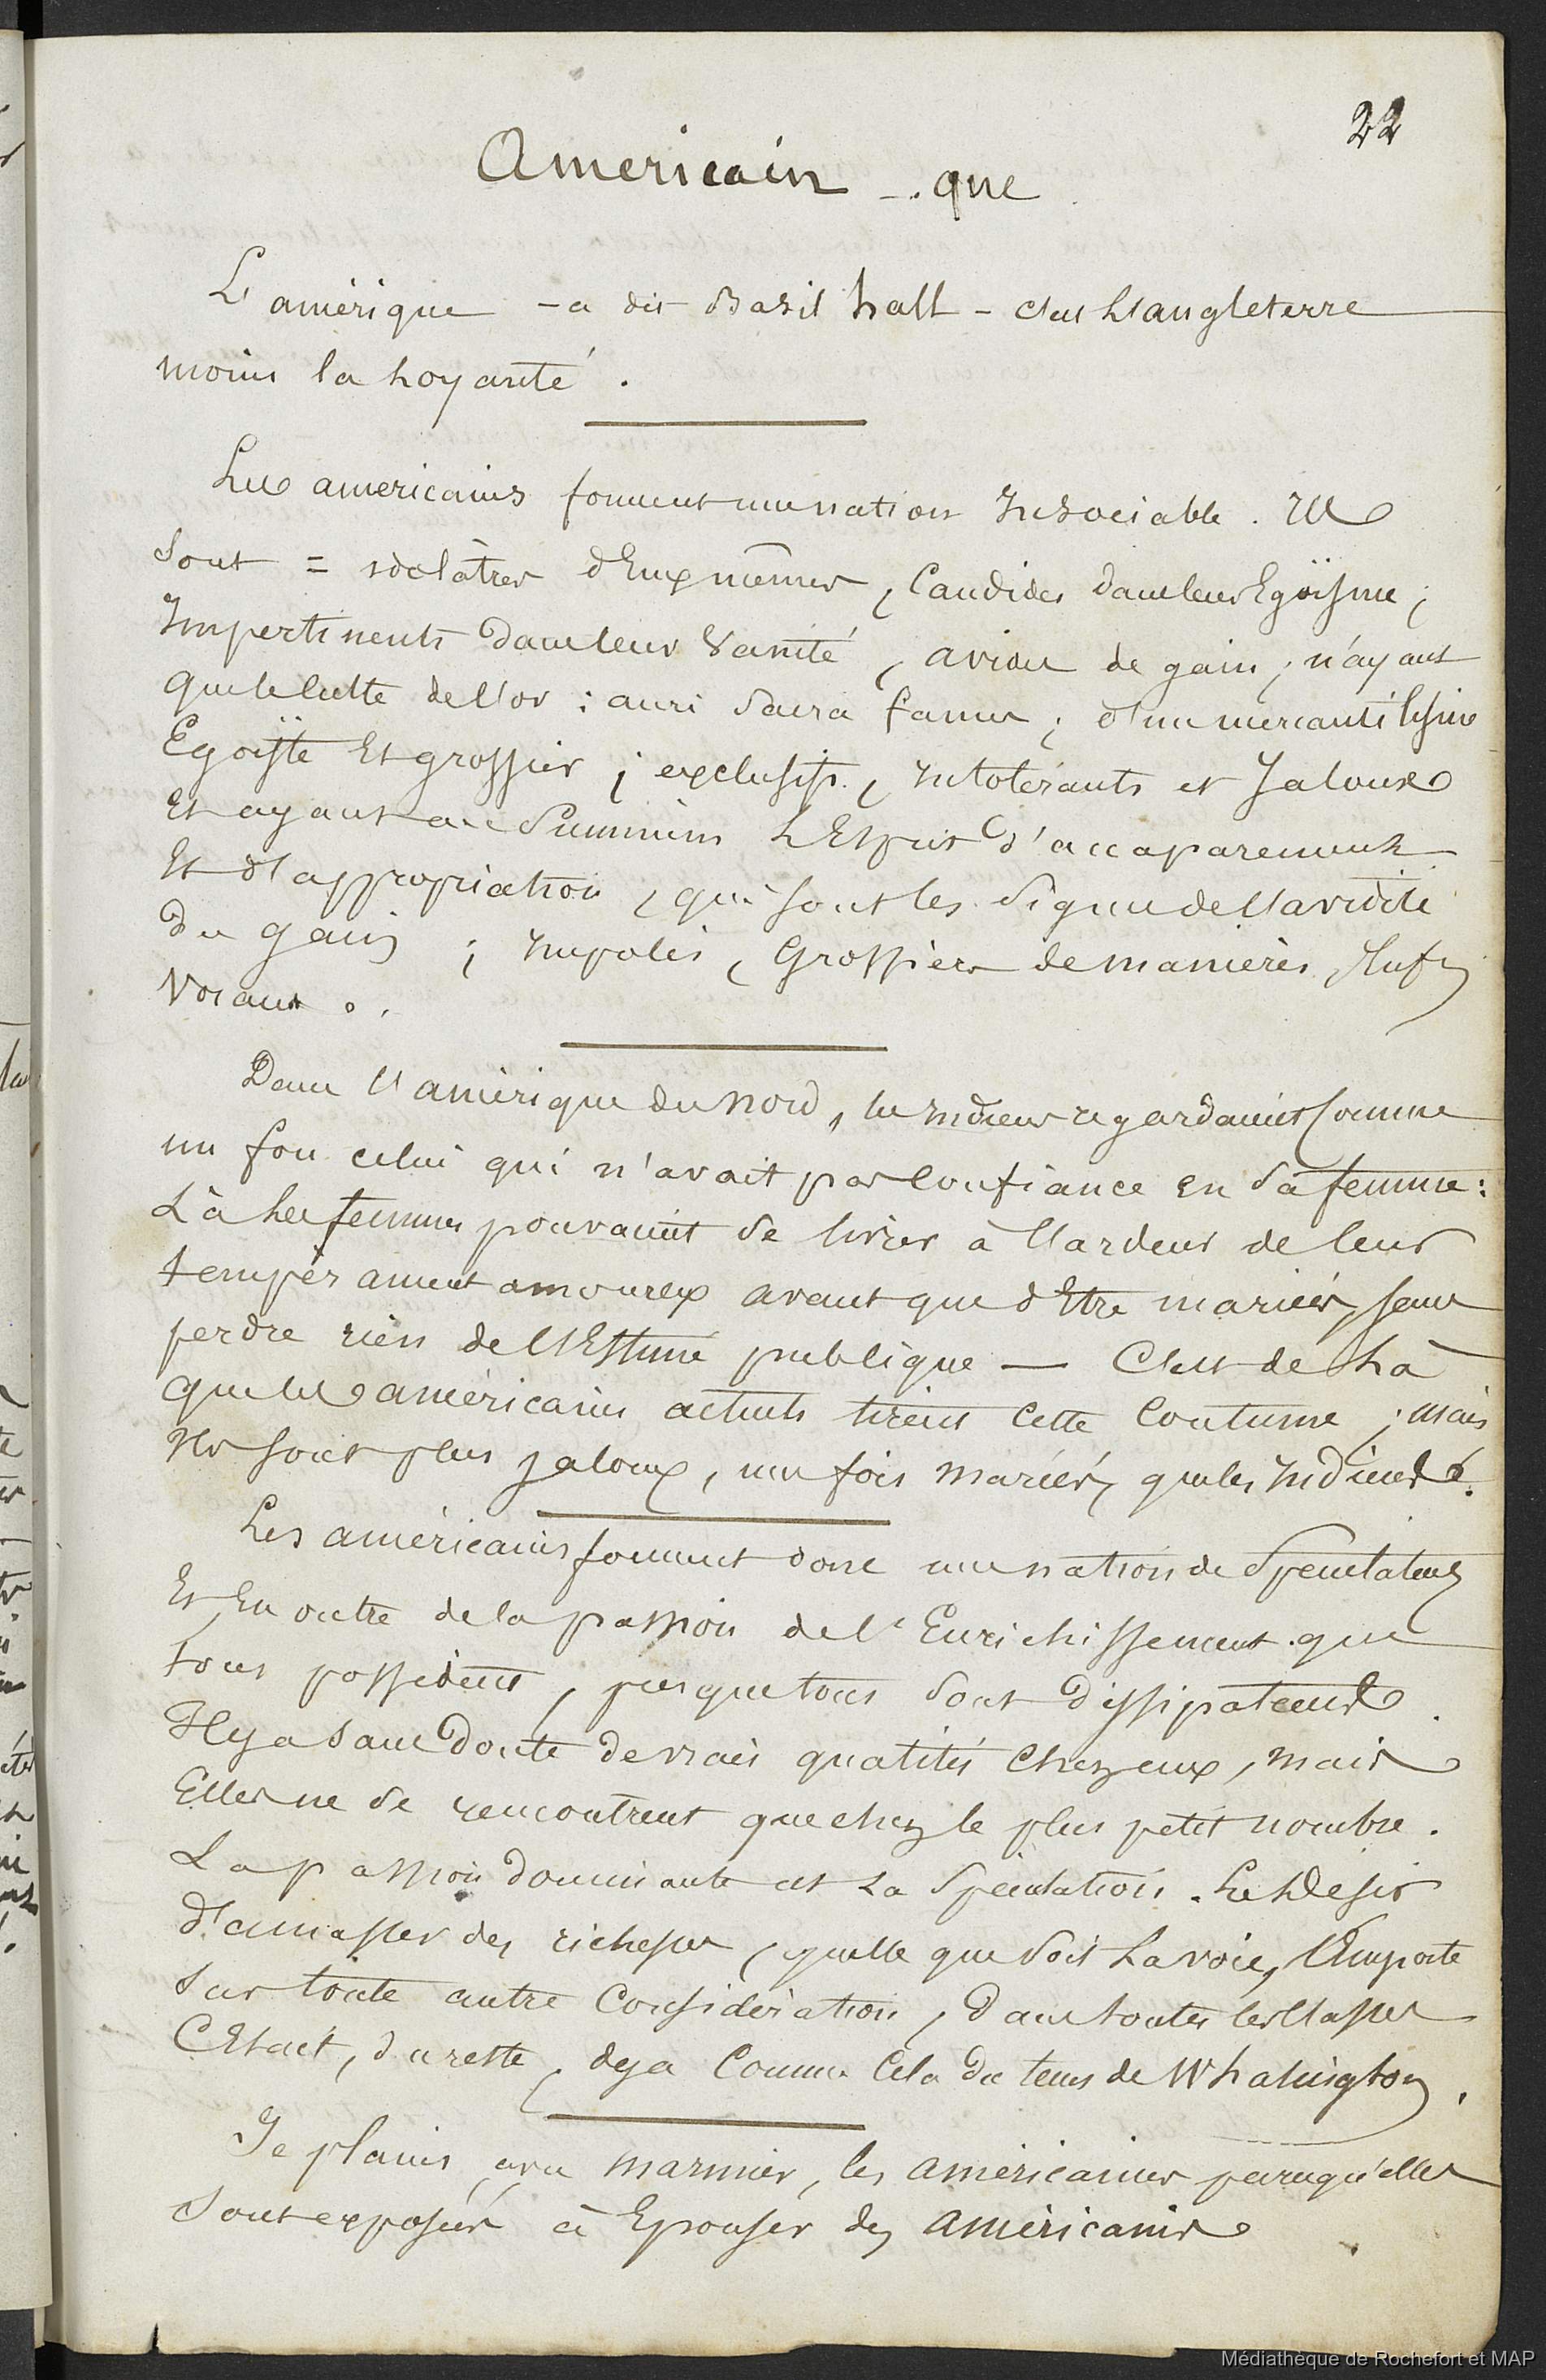 22
Americain -. que
L'amérique - a dit Bazil hall - c'est l'angleterre
moins la Royauté.
Les americains forment une nation Insociable. Ils
sont = idolâtres d'Eux mêmes, Candides dans leur Egoïsme ;
Impertinents dans leur Vanité, avides de gain ; n'ayant
que le culte de l'or : auri sacra fames ; d'un mercantilisme
Egoïste Et grossier ; exclusifs, Intolérants et Jaloux
Et ayant au Summum L'Esprit d'accaparement
Et d'appropriation, qui sont les signes de l'avidité
du gain ; Impolis, Grossiers de manières, Enfin
Voraux..
Dans l'amérique du nord, les Indiens regardaient Comme
un fou celui qui n'avait pas Confiance en sa femme :
Là Les femmes pouvaient se livrer à l'ardeur de leur
tempérament amoureux avant que d'Etre mariées, sans
perdre rien de l'Estime publique — C'est de Là
que les américains actuels tirent Cette Coutume ; mais
Ils sont plus jaloux, une fois mariés, que les Indiens.
Les américains forment donc une nation de Spéculateurs
Et En outre de la passion de l'Enrichissement que
tous possèdent, presque tous sont Dissipateurs.
Il y a sans Doute de vraies qualités Chez eux, mais
Elles ne se rencontrent que chez le plus petit nombre.
La passion dominante est La Spéculation. Le Désir
d'amasser des richesses, quelle que soit La voie, l'Emporte
sur toute autre Considération, dans toutes les Classes
C'Etait, du reste, deja Comme Cela du tems de Whasington.
Je plains, avec marmier, les américaines parcequ'elles
sont exposées à Epouser des américains
Médiathèque de Rochefort et MAP